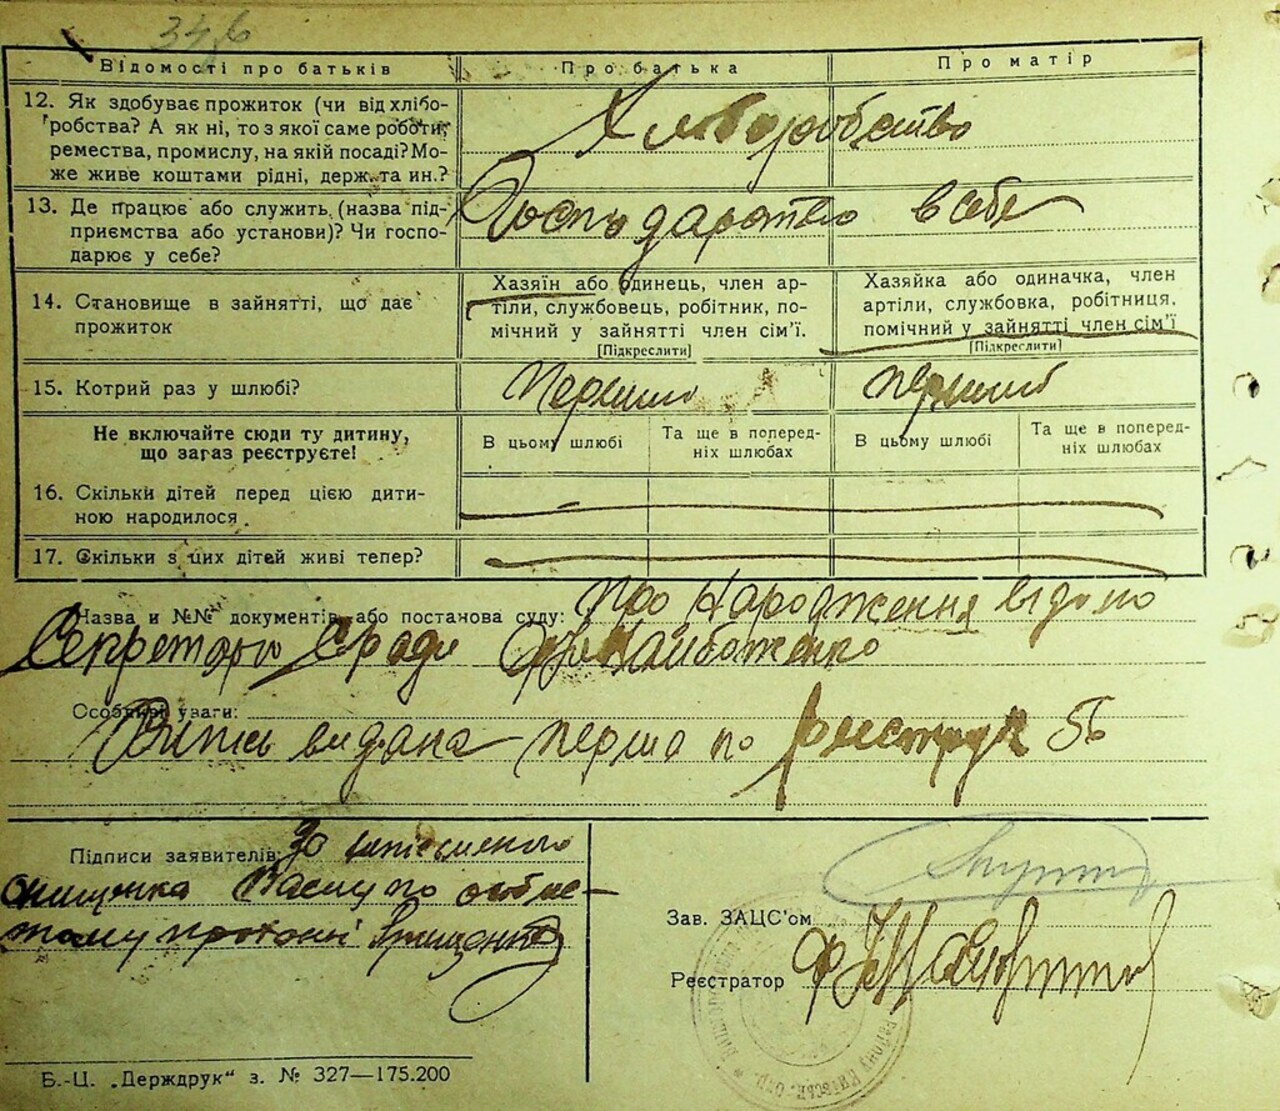 34б
Відомості про батьків
Про батька
Про матір
12. Як здобуває прожиток (чи від хлібо-
робства? А як ні, то з якої саме роботи,
ремества, промислу, на якій посаді? Мо-
же живе коштами рідні, держ. та ин.?
Хлиборобство
13. Де працює або служить (назва під-
приємства або установи)? Чи госпо-
дарює у себе?
Господарство в себе
14. Становище в зайнятті, що дає
прожиток
Хазяїн або одинець, член ар-
тіли, службовець, робітник, по-
мічний у зайнятті член сім'ї.
[Підкреслити]
Хазяйка або одиначка, член
артіли, службовка, робітниця,
помічний у зайнятті член сім'ї
[Підкреслити]
15. Котрий раз у шлюбі?
Перший
перший
Не включайте сюди ту дитину,
що загаз реєструєте!
В цьому шлюбі
Та ще в поперед-
ніх шлюбах
В цьому шлюбі
Та ще в поперед-
ніх шлюбах
16. Скільки дітей перед цією дити-
ною народилося.
17. Скільки з цих дітей живі тепер?
Назва и №№ документів або постанова суду: про Народження відомо
Секретарю С/ради Найбоженко
Особливі уваги:
Витяг видана перша по реєстру 56
Підписи заявителів: За
Онищенка по особис-
тому Грищенко
Зав. ЗАЦС'ом
Реєстратор
Б.-Ц. „Держдрук" з. № 327—175.200